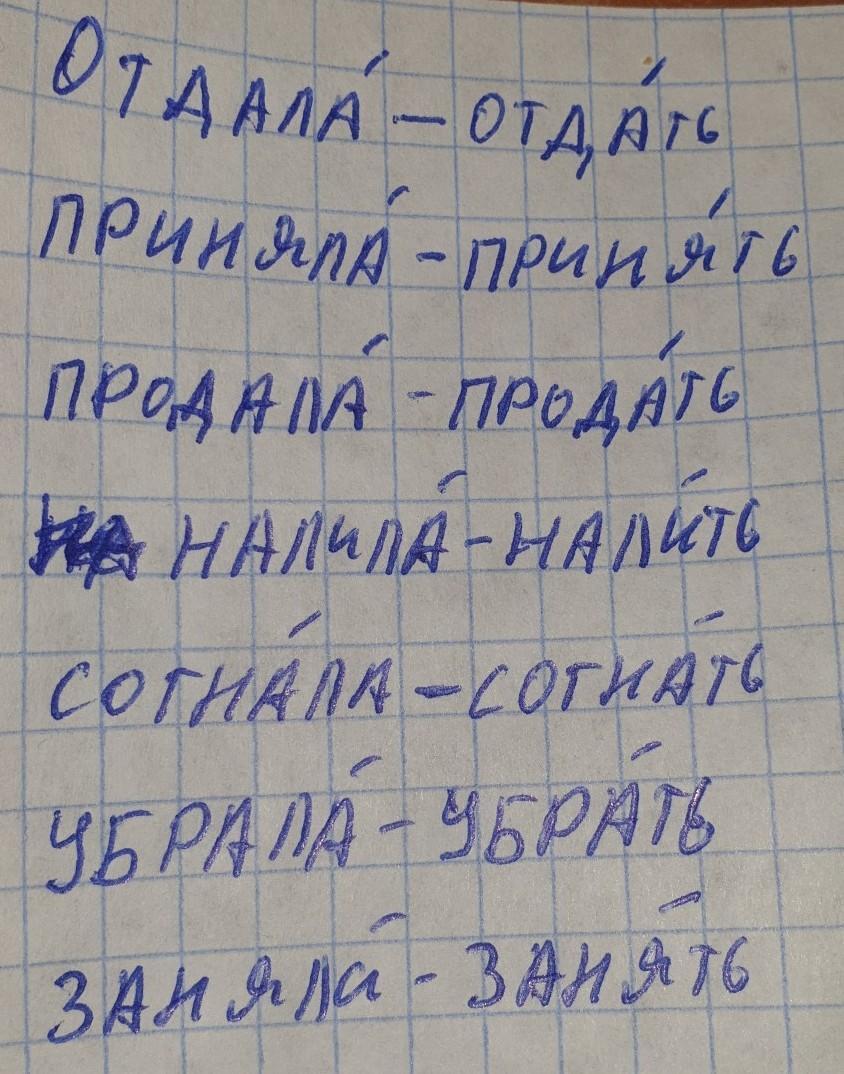 ОТДАЛА́ – ОТДА́ТЬ
ПРИНЯЛА́ – ПРИНЯ́ТЬ
ПРОДАЛА́ – ПРОДА́ТЬ
НАЛИЛА́ – НАЛИ́ТЬ
СОГНА́ЛА – СОГНА́ТЬ
УБРАЛА́ – УБРА́ТЬ
ЗАНЯЛА́ – ЗАНЯ́ТЬ